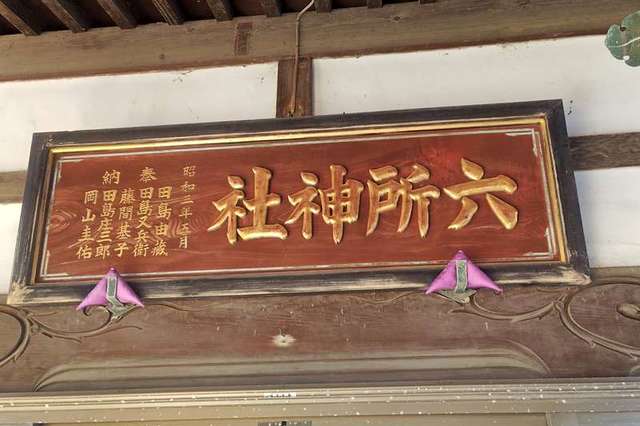 六所神社
昭和三年五月
田島由藏
奉田島又兵衛
藤間基子
納田島庄三郎
岡山圭佑